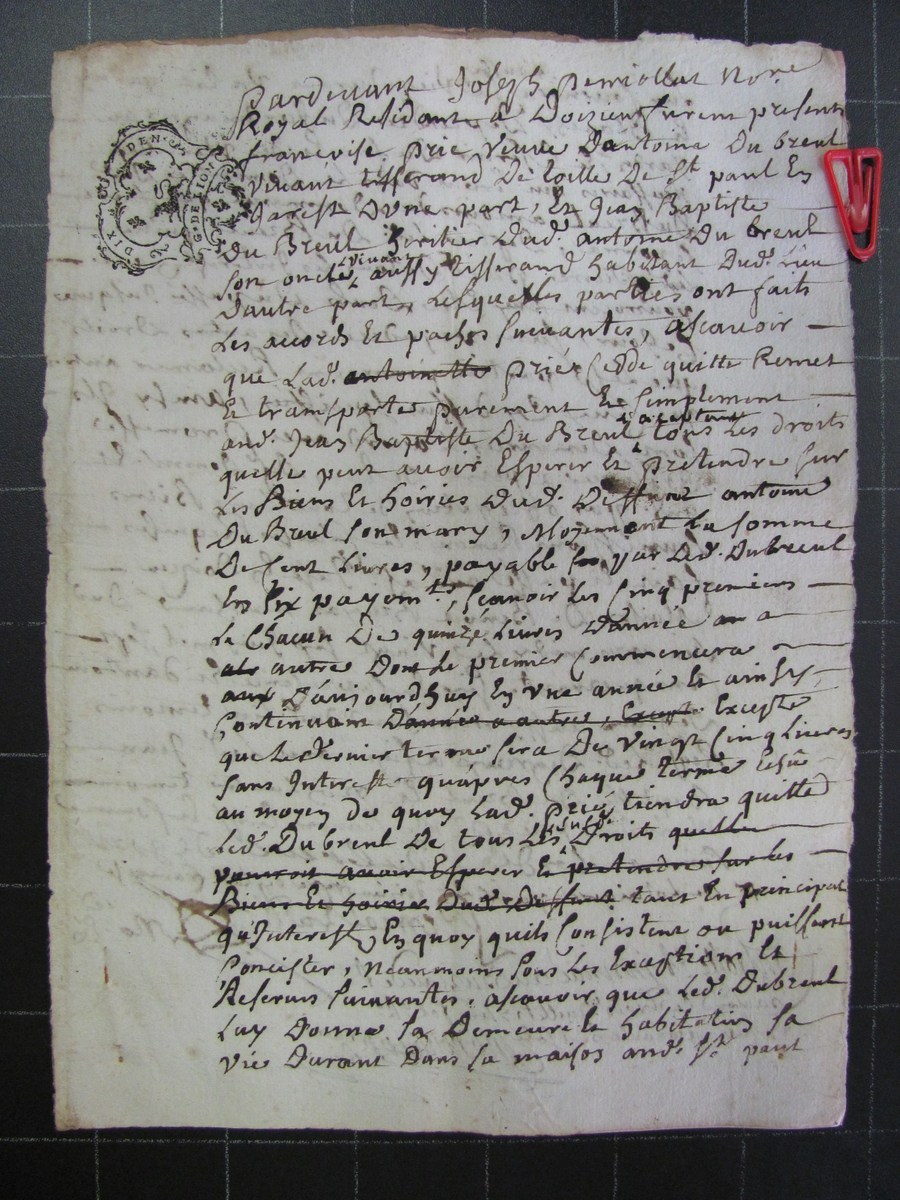 Pardevant Joseph Perriollat Nore
Royal Residant a Doizieu furent presents
francoise prie veuve dantoine Du breul
vivant tisserand De toille De St paul En
Jarest Dune part, Et Jean Baptiste
Du Breul heritier Dudt. antoine Du breul
son oncle vivant aussy tisserand habitant Dud. Lieu
Dautre part, Lesquelles parties ont faits
Les accords Et paches suivantes, ascavoir
que Lad. antoinette prier cedde quitte Remet
Et transporte purement Et simplement
aud. Jean Baptiste Du Breul acceptant tous Les droits
quelle peut avoir Esperer Et pretendre sur
Les Biens Et hoiries Dud. Deffunt antoine
Du Breul son mary, Moyennant la somme
De Cent Livres, payable par Led. Dubreul
En six payemts, scavoir Les cinq premiers
De quinze Livres Dannée a
autre Dont Le premier Commencera
Daujourdhuy En une année Et ainsy
Continuant Dannée a autre, Except Excepte
que Le dernier terme sera De vingt cinq Livres
sans Interest quapres Chaque terme Echu
au moyen de quoy Lad. prier tiendra quitte
Led. Dubreul De tous Les susd. Droits quelle
pourroit avoir Esperer Et pretendre sur Les
Biens Et hoiries Dud. Deffunt tant En principal
qu'Interest, En quoy quils Consistent ou puissent
Concister, Néanmoins sous Les Exceptions Et
Reserves suivantes, ascavoir que Led. Dubreul
Luy Donne sa Demeure Et habitation sa
vie Durant Dans sa maison aud. St. paul
DIX DEN.
G. DE LION